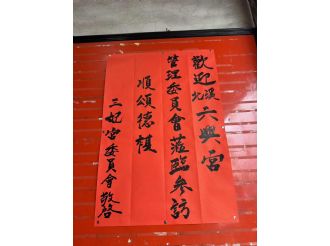 歡迎北港六興宮
管理委員會蒞臨參訪
順頌德馥
三妃宮委員會敬啓